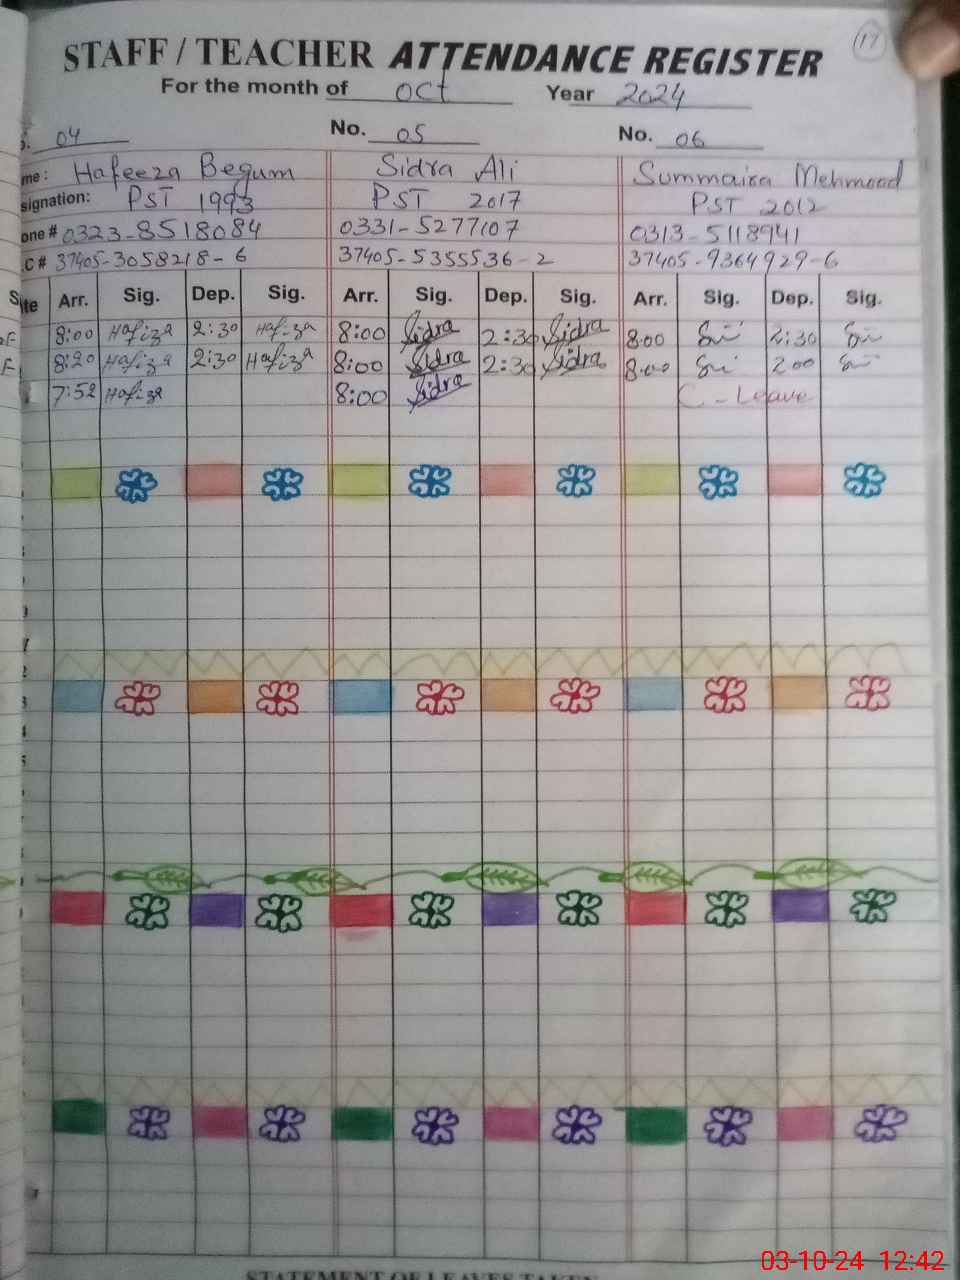 17
STAFF / TEACHER ATTENDANCE REGISTER
For the month of Oct Year 2024
04 No. 05 No. 06
me: Hafeeza Begum Sidra Ali Summaira Mehmood
signation: PST 1993 PST 2017 PST 2012
one # 0323-8518084 0331-5277107 0313-5118941
.C # 37405-3058218-6 37405-5355536-2 37405-9364929-6
te Arr. Sig. Dep. Sig. Arr. Sig. Dep. Sig. Arr. Sig. Dep. Sig.
8:00 Hafiza 2:30 Hafiza 8:00 Sidra 2:30 Sidra 8:00 2:30
8:20 Hafiza 2:30 Hafiza 8:00 Sidra 2:30 Sidra 8:00 2:00
7:52 Hafiza 8:00 Sidra C - Leave
STATEMENT OF LEAVES TAKEN
03-10-24 12:42